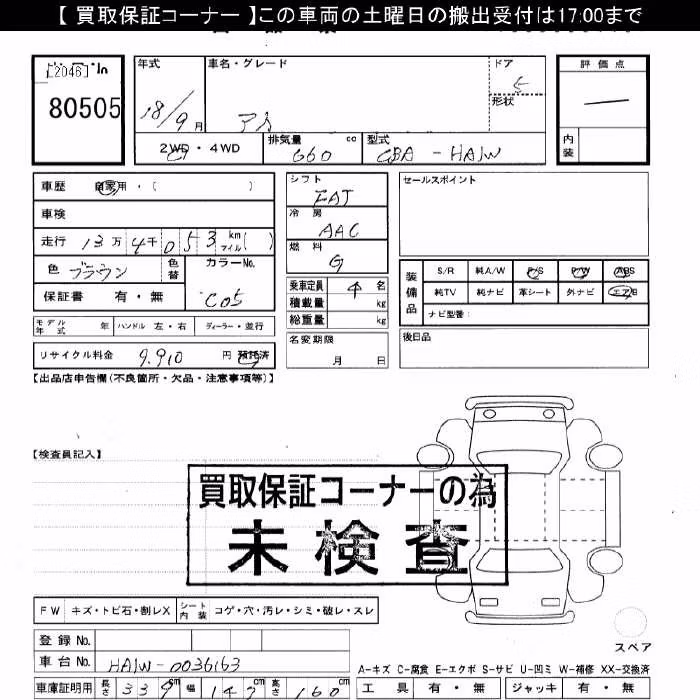 【 買取保証コーナー 】この車両の土曜日の搬出受付は17:00まで
[2046]
80505
年式
18/9月
車名・グレード
ドア
5
形状
2WD・4WD
排気量
660
cc
型式
CBA-HA1W
評価点
内装
車歴
自家用・( )
車検
走行 13万4千053km マイル( )
色 ブラウン
色替
カラーNo.
C05
保証書 有・無
モデル年式 年
ハンドル 左・右
ディーラー・並行
リサイクル料金 9,910 円 預託済
【出品店申告欄(不良箇所・欠品・注意事項等)】
シフト
FAT
冷房
AAC
燃料
G
乗車定員 4 名
積載量 kg
総重量 kg
名変期限
月 日
セールスポイント
装備品
S/R 純A/W P/S P/W ABS
純TV 純ナビ 革シート 外ナビ エアB
ナビ型番:
後日品
【検査員記入】
買取保証コーナーの為
未検査
FW キズ・トビ石・割レX
シート内装 コゲ・穴・汚レ・シミ・破レ・スレ
登録No.
車台No. HA1W-0036163
車庫証明用 長さ 339cm 幅 147cm 高さ 160cm
スペア
A-キズ C-腐食 E-エクボ S-サビ U-凹ミ W-補修 XX-交換済
工具 有・無 ジャッキ 有・無